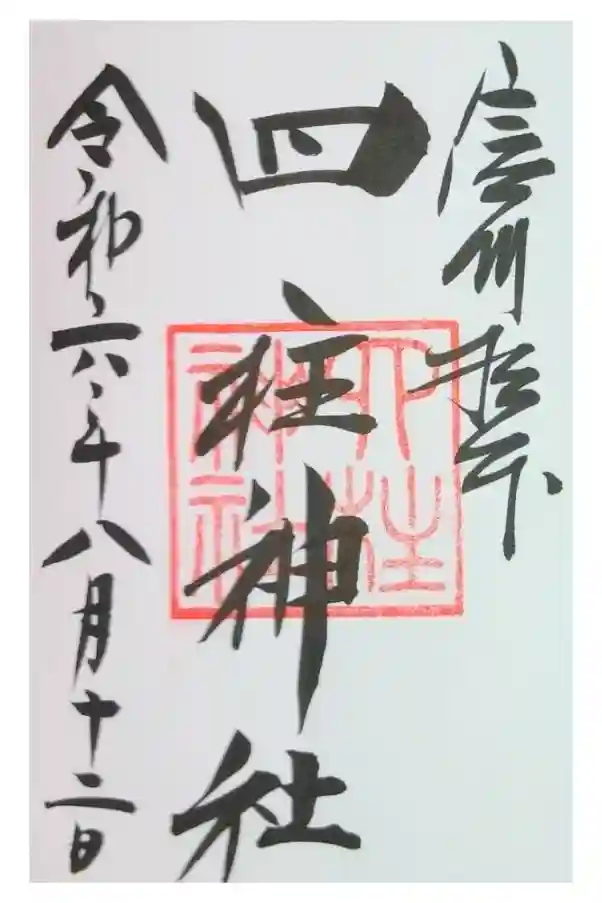 信州松本
四柱神社
四柱神社
令和六年八月十二日